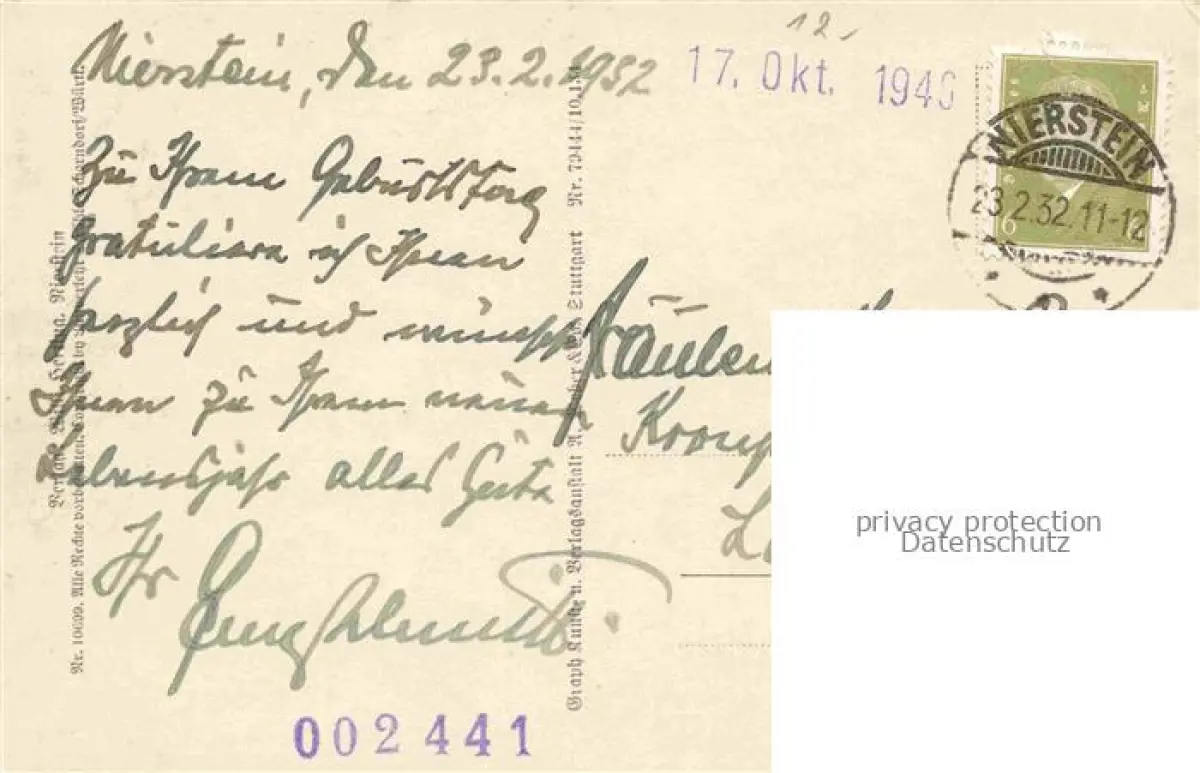 12.-
Nierstein, den 23.2.1932
17. Okt. 1940
NIERSTEIN
23.2.32.11-12
6
Zu Ihrem Geburtstag
gratuliere ich Ihnen
herzlich und wünsche
Ihnen zu Ihrem neuen
Lebensjahr alles Gute
Ihr
Fräulein
002441
Nierstein
Nr. 10699. Alle Rechte vorbehalten.
Graph. Kunst- u. Verlagsanstalt
Stuttgart Nr. 79444/10.131
privacy protection
Datenschutz